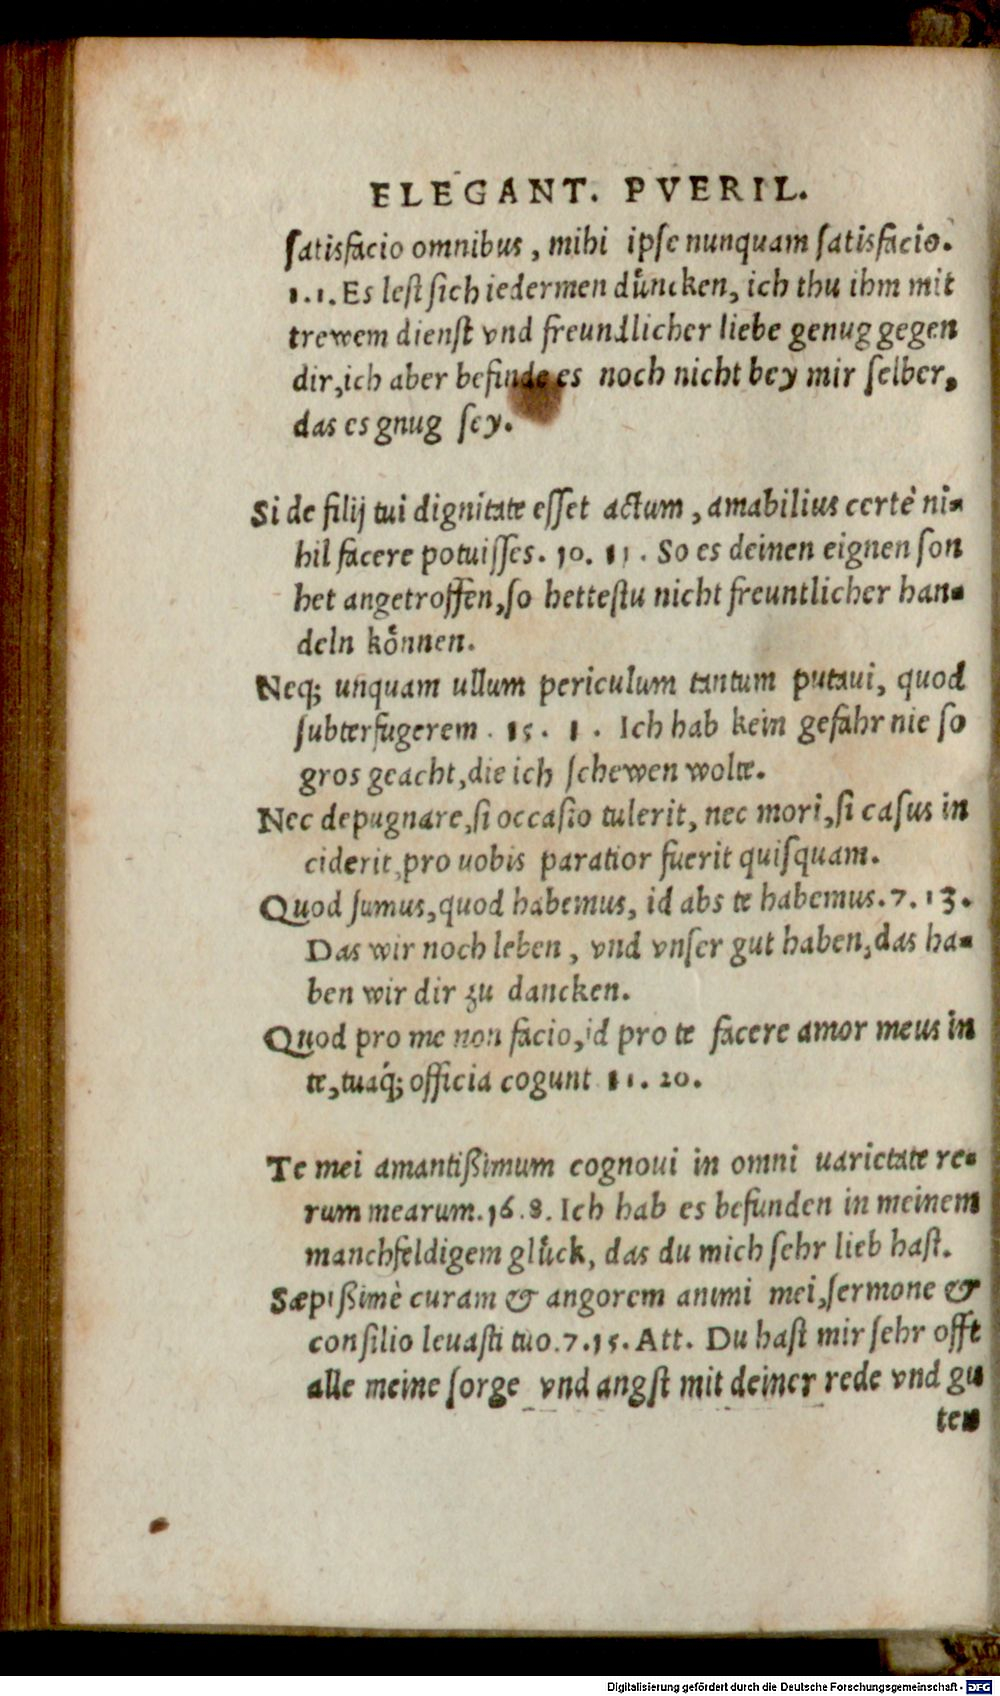 ELEGANT. PVERIL.
ſatisfacio omnibus, mihi ipſe nunquam ſatisfacio.
1.1. Es leſt ſich iedermen duͤncken, ich thu ihm mit
trewem dienſt vnd freundlicher liebe genug gegen
dir, ich aber befinde es noch nicht bey mir ſelber,
das es gnug ſey.
Si de filij tui dignitate eſſet actum, amabilius certè ni-
hil facere potuiſſes. 10. 11. So es deinen eignen ſon
het angetroffen, ſo hetteſtu nicht freuntlicher han-
deln koͤnnen.
Neq; unquam ullum periculum tantum putaui, quod
ſubterfugerem. 15. 1. Ich hab kein gefahr nie ſo
gros geacht, die ich ſchewen wolte.
Nec depugnare, ſi occaſio tulerit, nec mori, ſi caſus in
ciderit, pro uobis paratior fuerit quiſquam.
Quod ſumus, quod habemus, id abs te habemus. 7. 13.
Das wir noch leben, vnd vnſer gut haben, das ha-
ben wir dir zu dancken.
Quod pro me non facio, id pro te facere amor meus in
te, tuaq́; officia cogunt 11. 20.
Te mei amantißimum cognoui in omni uarietate re-
rum mearum. 16. 8. Ich hab es befunden in meinem
manchfeldigem gluͤck, das du mich ſehr lieb haſt.
Sæpißimè curam & angorem animi mei, ſermone &
conſilio leuaſti tuo. 7. 15. Att. Du haſt mir ſehr offt
alle meine ſorge vnd angſt mit deiner rede vnd gu
ten
Digitalisierung gefördert durch die Deutsche Forschungsgemeinschaft - DFG